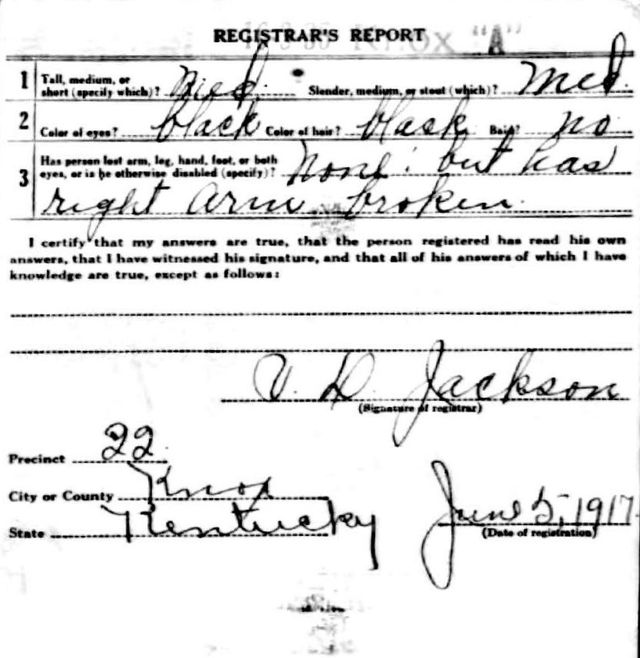 REGISTRAR'S REPORT
Knox "A"
1 Tall, medium, or
short (specify which)? Med Slender, medium, or stout (which)? Med
2 Color of eyes? black Color of hair? black Bald? no
3 Has person lost arm, leg, hand, foot, or both
eyes, or is he otherwise disabled (specify)? None: but has
right arm broken
I certify that my answers are true, that the person registered has read his own
answers, that I have witnessed his signature, and that all of his answers of which I have
knowledge are true, except as follows:
V. D. Jackson
(Signature of registrar)
Precinct 22
City or County Knox
State Kentucky
June 5, 1917
(Date of registration)